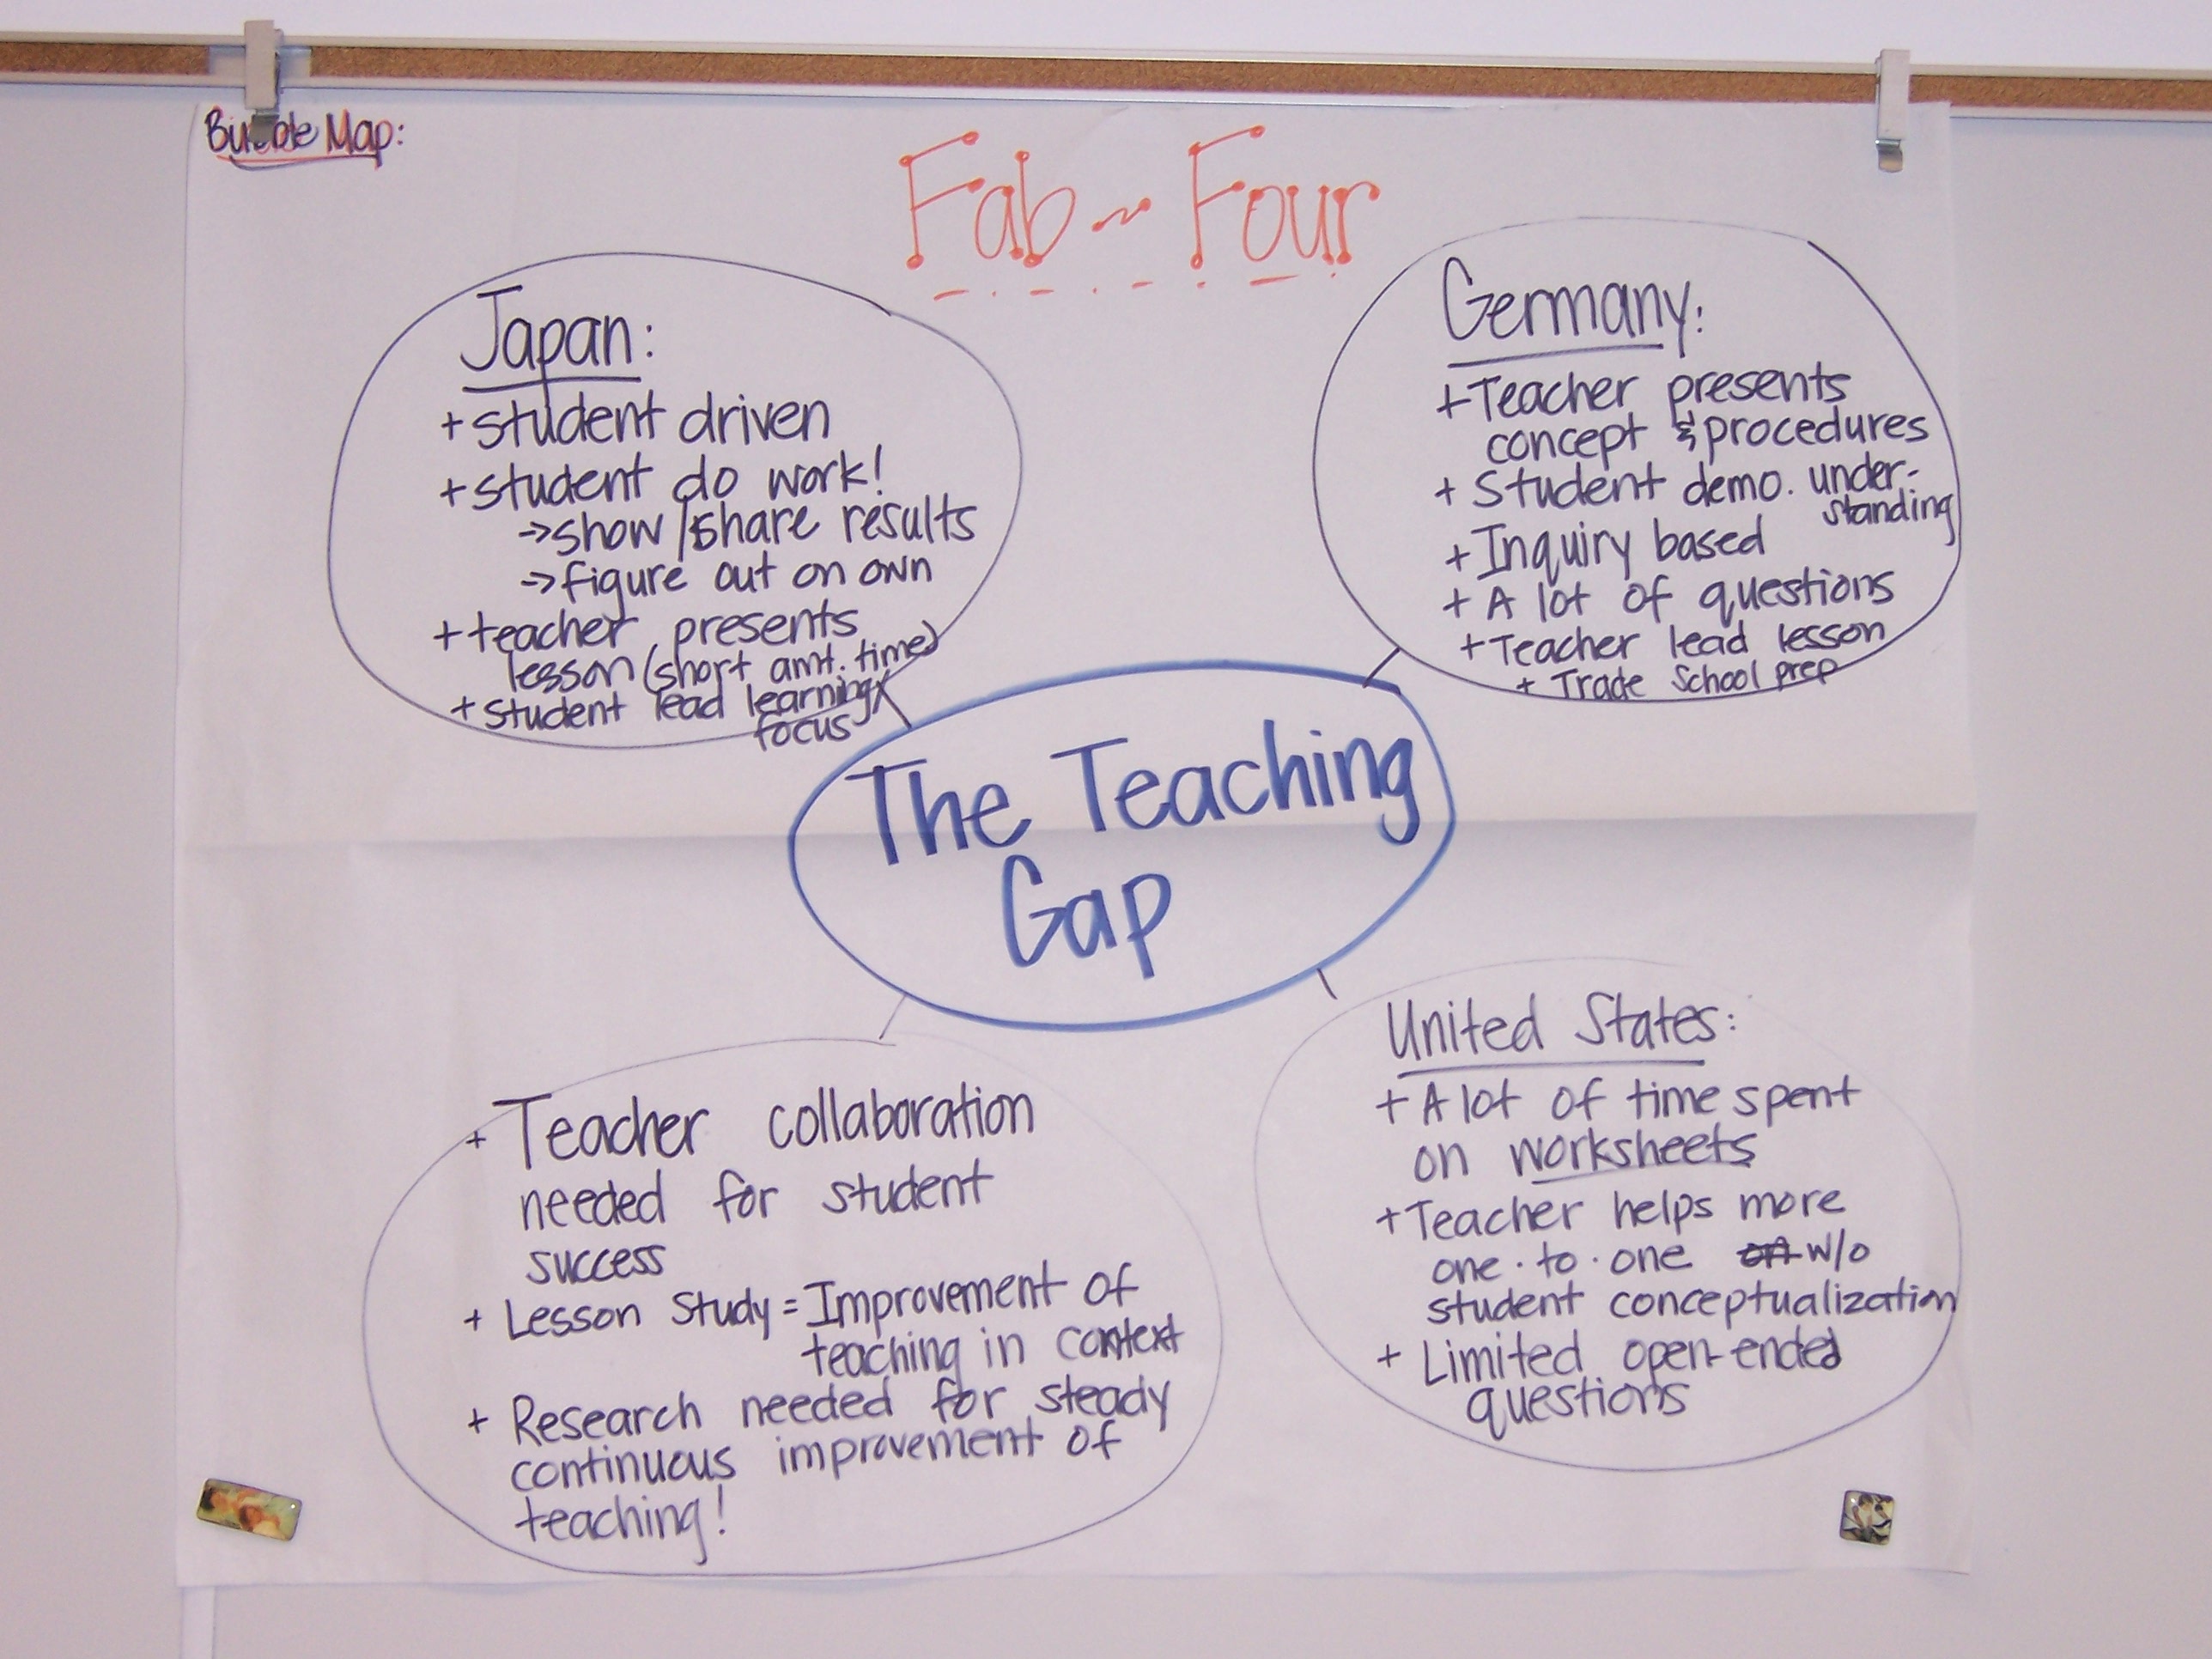 Bubble Map:
Fab ~ Four
Japan:
+ student driven
+ student do work!
→ show/share results
→ figure out on own
+ teacher presents
lesson (short amt. time)
+ student lead learning/
focus
Germany:
+ Teacher presents
concept & procedures
+ Student demo. under-
standing
+ Inquiry based
+ A lot of questions
+ Teacher lead lesson
+ Trade School prep
The Teaching
Gap
+ Teacher collaboration
needed for student
success
+ Lesson Study = Improvement of
teaching in context
+ Research needed for steady
continuous improvement of
teaching!
United States:
+ A lot of time spent
on worksheets
+ Teacher helps more
one·to·one on w/o
student conceptualization
+ Limited open-ended
questions